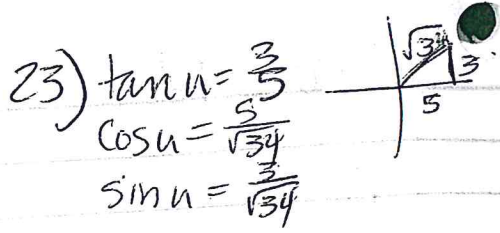 23) tan u = 3/5
cos u = 5/√34
sin u = 3/√34
√34
3
5